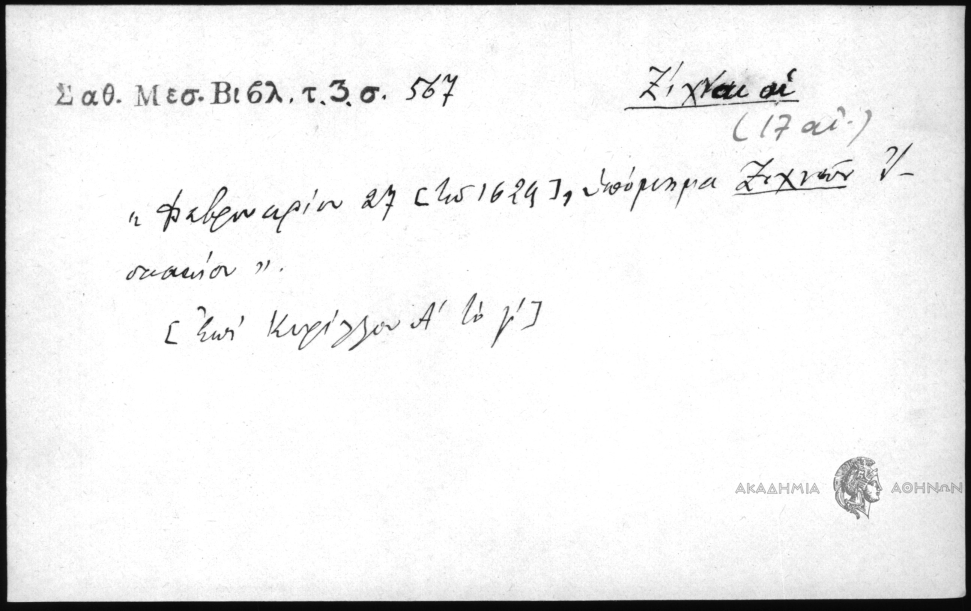 Σαθ. Μεσ. Βιβλ. τ. 3. σ. 567
Ζίχναι αἱ
(17 αἰ.)
« Φεβρουαρίου 27 [τοῦ 1629], ὑπόμνημα Ζιχνῶν
[Ἐπὶ Κυρίλλου Α΄ τὸ γ΄]
ΑΚΑΔΗΜΙΑ ΑΘΗΝΩΝ